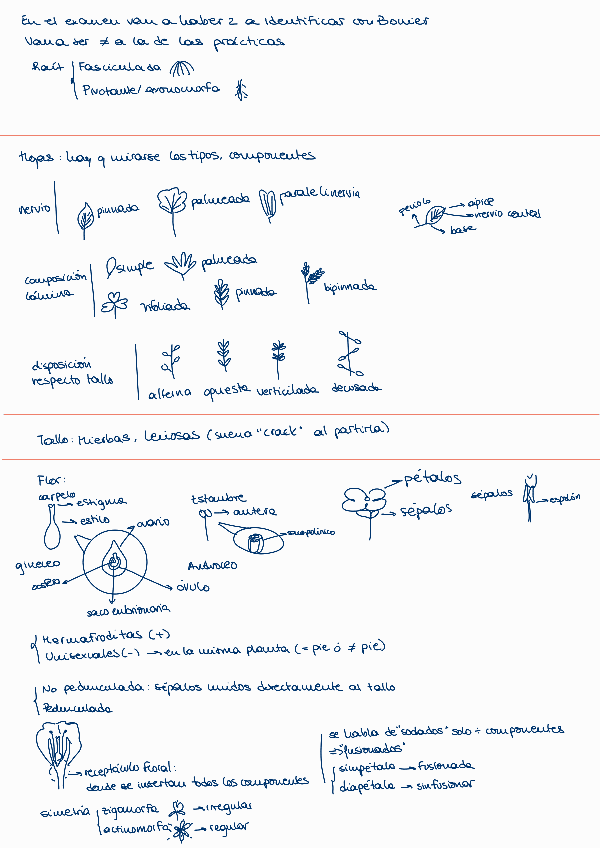 En el examen van a haber 2 a identificar con Bonier
Van a ser ≠ a la de las prácticas
Raíz Fasciculada
Pivotante/axonomorfa
Hojas: hay q mirarse los tipos, componentes
nervio pinnada palmeada paralelinervia
peciolo ápice
nervio central
base
composición lámina simple palmeada
trifoliada pinnada bipinnada
disposición respecto tallo
alterna opuesta verticilada decusada
Tallo: Hierbas, leñosas (suena "crack" al partirla)
Flor:
carpelo → estigma
→ estilo
ovario
gineceo
óvulo
saco embrionario
Estambre
→ antera
saco polínico
Androceo
→ pétalos
→ sépalos
sépalos → espolón
Hermafroditas (+)
Unisexuales (-) → en la misma planta (= pie ó ≠ pie)
No pedunculada: sépalos unidos directamente al tallo
Pedunculada
→ receptáculo floral:
donde se insertan todos los componentes
se habla de "soldados" solo ÷ componentes
⇒ "fusionados"
simpétala → fusionada
diapétala → sin fusionar
simetría zigomorfa → irregular
actinomorfa → regular